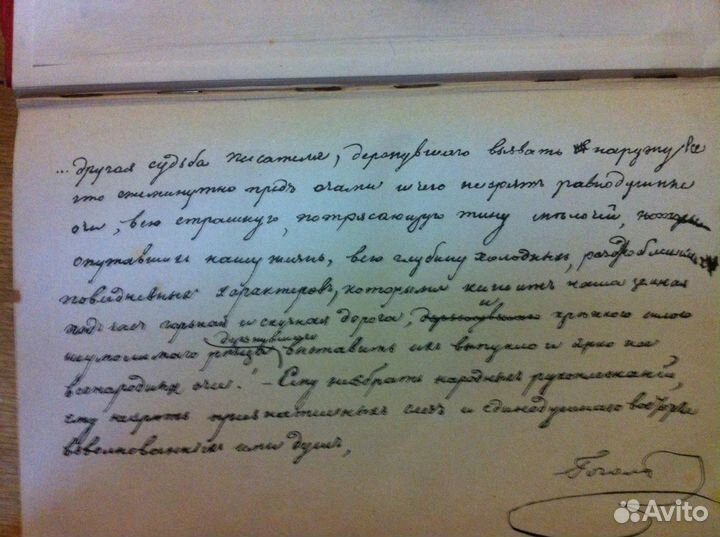 ... другая судьба писателя, дерзнувшаго вызвать наружу все
что ежеминутно предъ очами и чего незрятъ равнодушные
очи, всю страшную, потрясающую тину мелочей,
опутавшихъ нашу жизнь, всю глубину холодныхъ,
повседневныхъ характеровъ, которыми кишитъ наша земная
подчасъ горькая и скучная дорога, и крѣпкою силою
дерзнувшаго
неумолимаго рѣзца выставить ихъ выпукло и ярко на
всенародныя очи." - Ему несобрать народныхъ рукоплесканій,
ему незрѣть признательныхъ слезъ и единодушнаго восторга
взволнованныхъ имъ душъ,
Гоголь
Avito